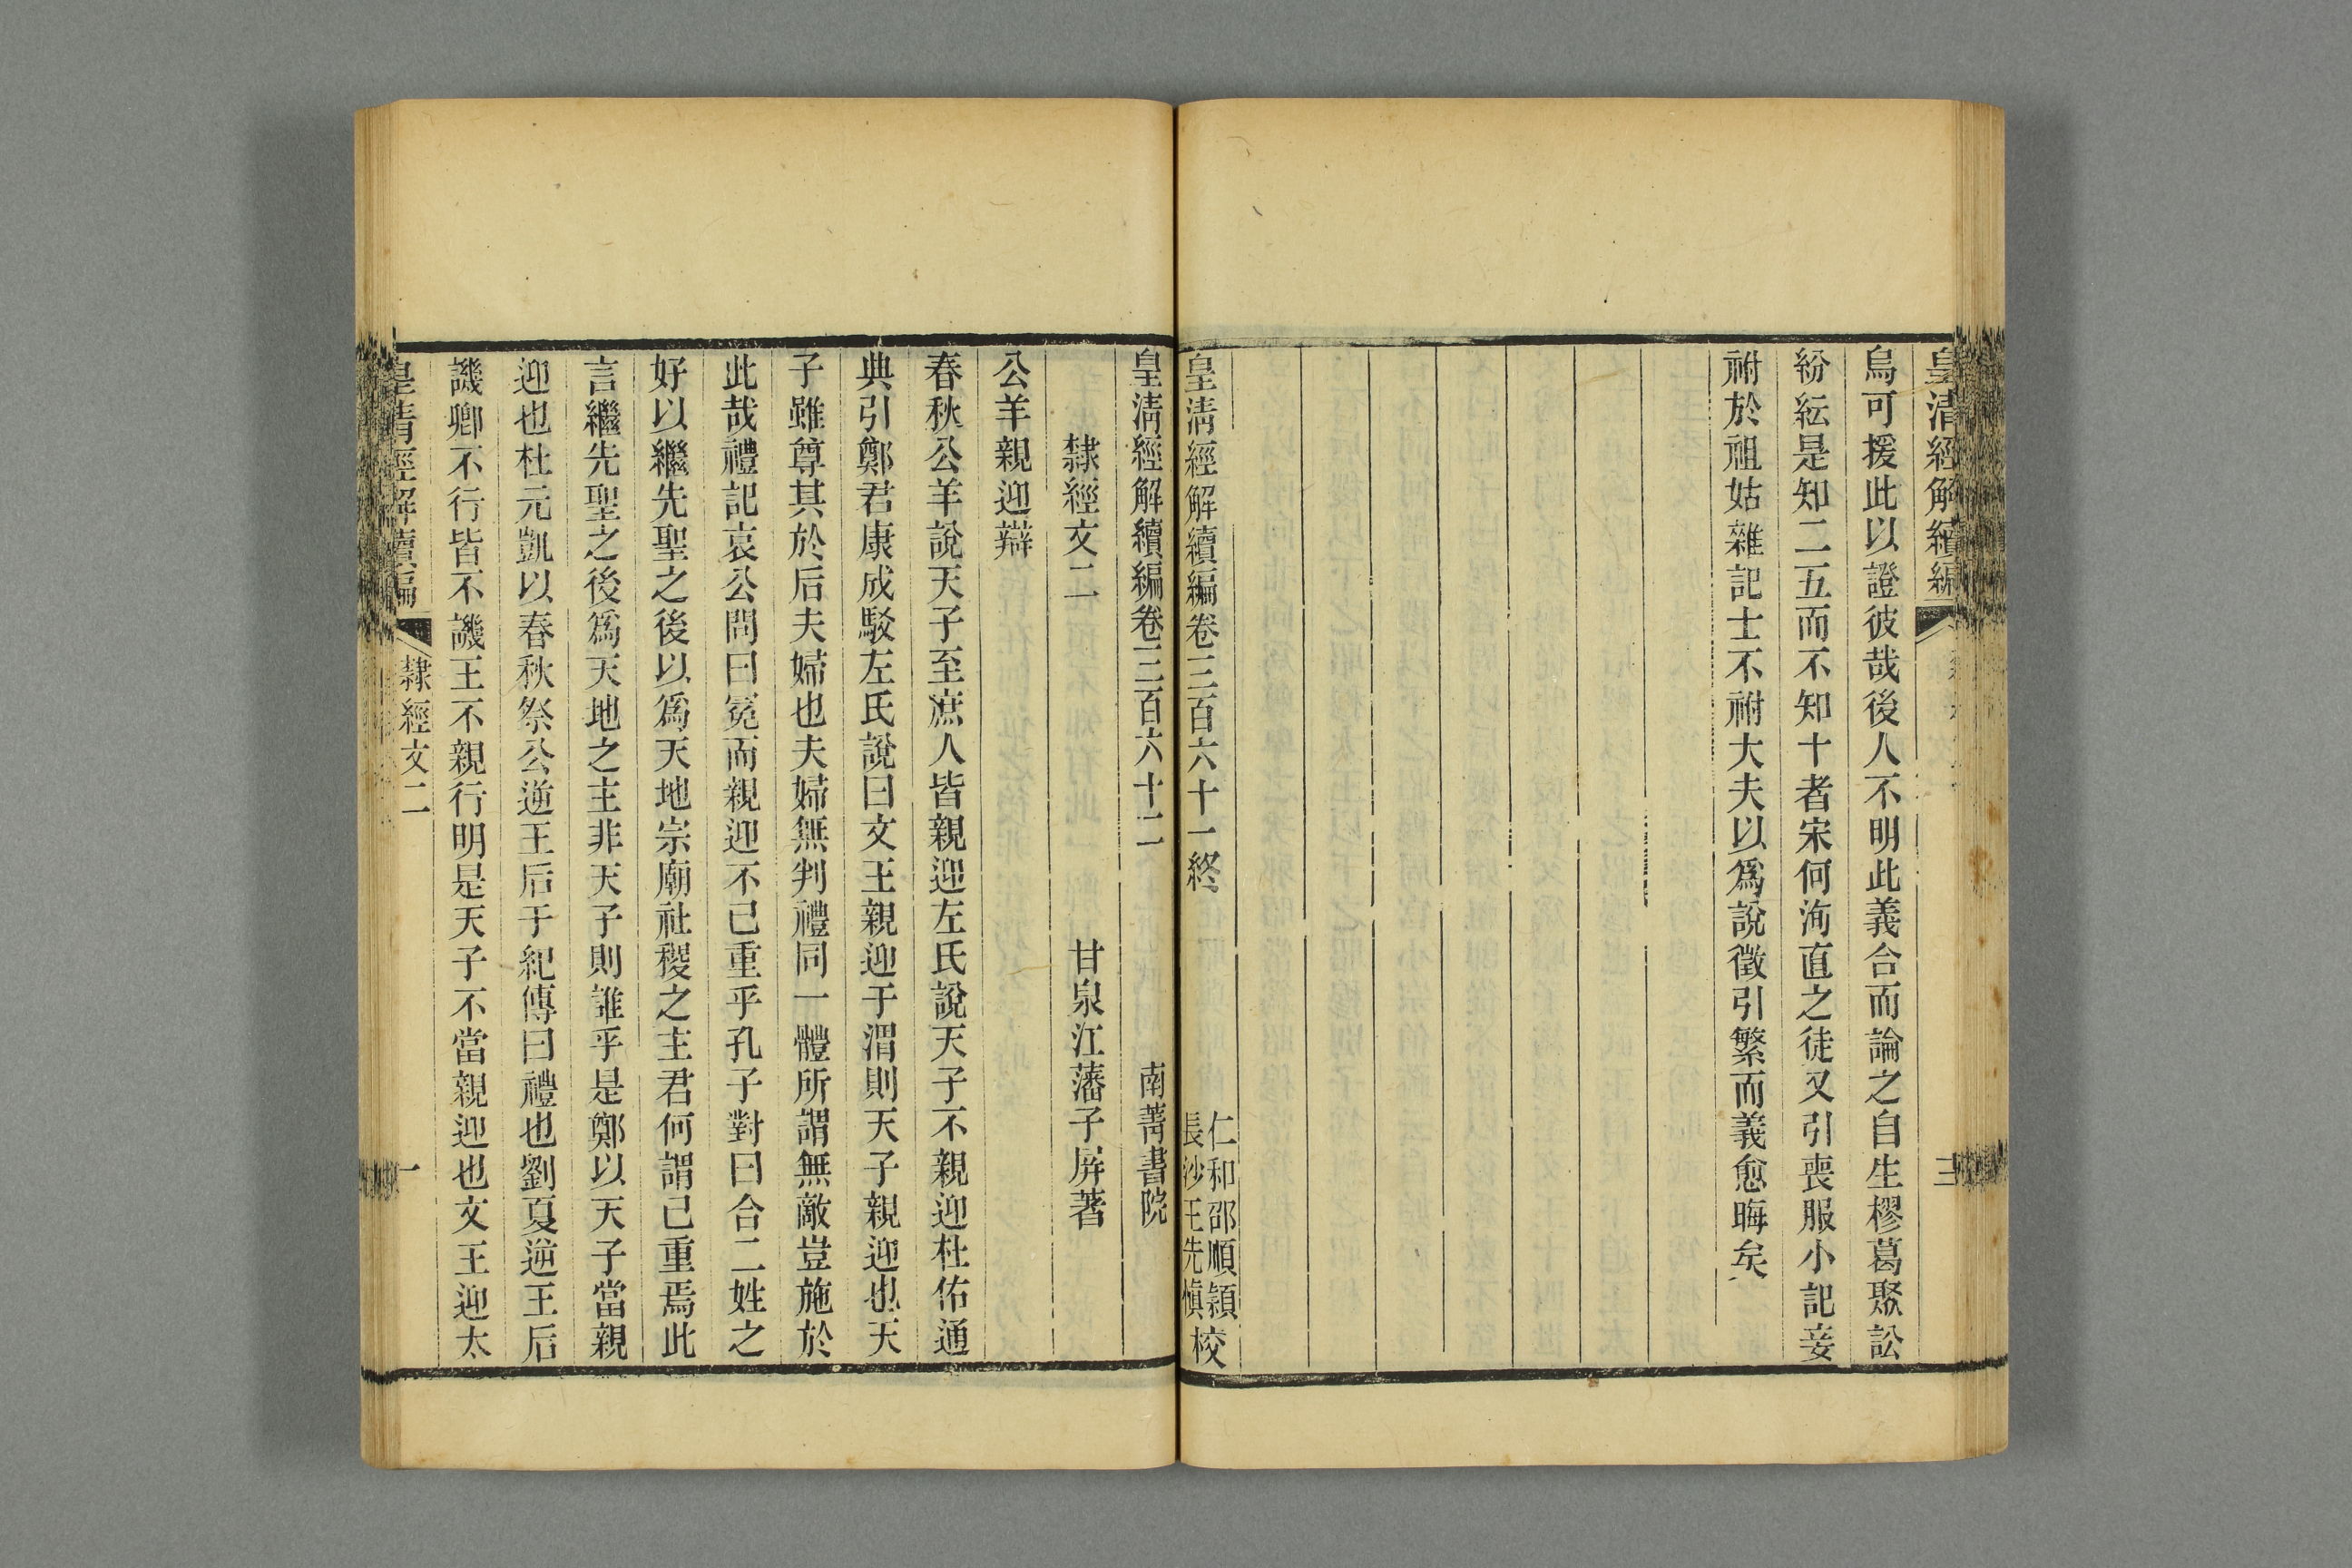 皇清經解續編
三
烏可援此以證彼哉後人不明此義合而論之自生樛葛聚訟
紛紜是知二五而不知十者宋何洵直之徒又引喪服小記妾
祔於祖姑雜記士不祔大夫以爲說徵引繁而義愈晦矣
皇清經解續編卷三百六十一終
仁和邵順穎
長沙王先愼
校
皇清經解續編卷三百六十二
南菁書院
隸經文二
甘泉江藩子屏著
公羊親迎辯
春秋公羊說天子至庶人皆親迎左氏說天子不親迎杜佑通
典引鄭君康成駁左氏說曰文王親迎于渭則天子親迎也天
子雖尊其於后夫婦也夫婦無判禮同一體所謂無敵豈施於
此哉禮記哀公問曰冕而親迎不已重乎孔子對曰合二姓之
好以繼先聖之後以爲天地宗廟社稷之主君何謂已重焉此
言繼先聖之後爲天地之主非天子則誰乎是鄭以天子當親
迎也杜元凱以春秋祭公逆王后于紀傳曰禮也劉夏逆王后
譏卿不行皆不譏王不親行明是天子不當親迎也文王迎太
皇清經解續編
隸經文二
一